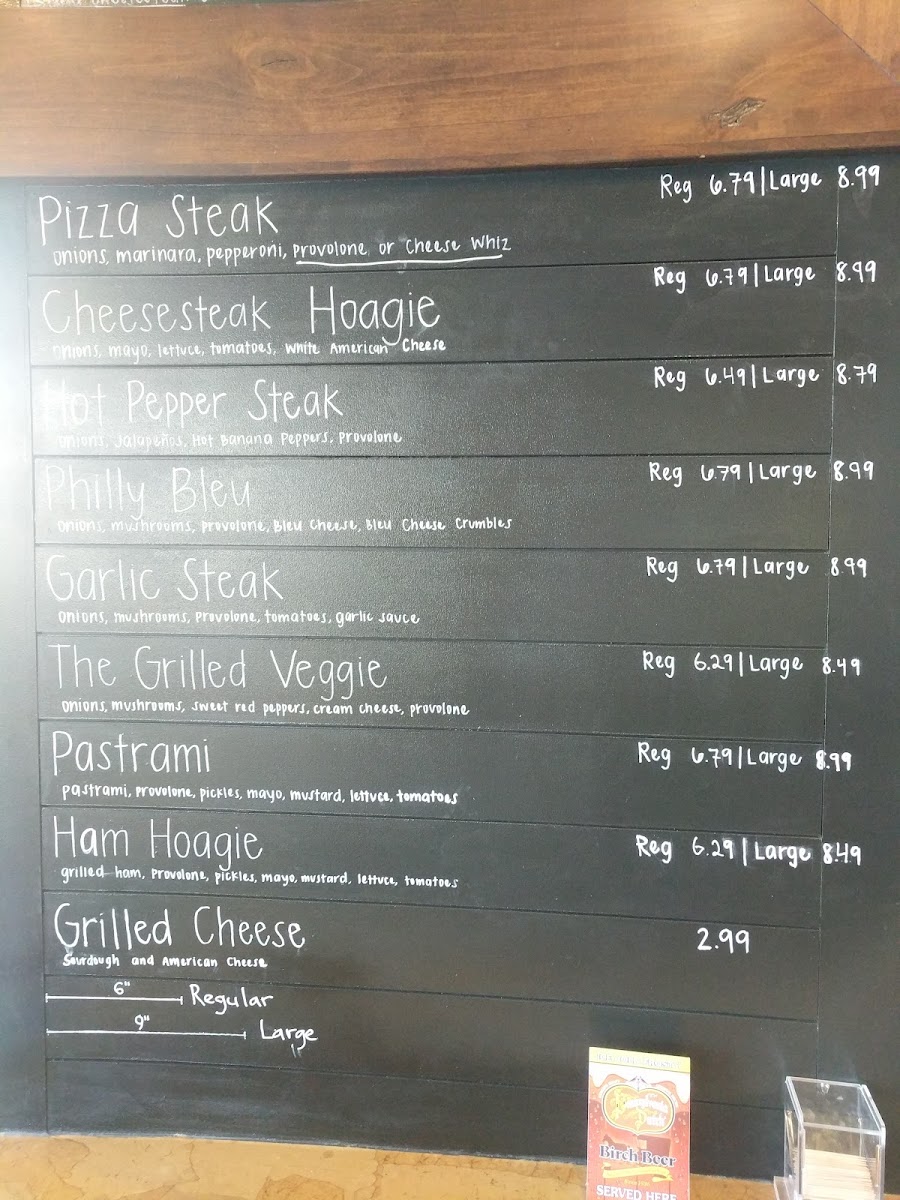 Pizza Steak Reg 6.79 | Large 8.99
onions, marinara, pepperoni, provolone or Cheese Whiz
Cheesesteak Hoagie Reg 6.79 | Large 8.99
onions, mayo, lettuce, tomatoes, White American Cheese
Hot Pepper Steak Reg 6.49 | Large 8.79
onions, Jalapeños, Hot Banana Peppers, Provolone
Philly Bleu Reg 6.79 | Large 8.99
onions, mushrooms, provolone, Bleu Cheese, Bleu Cheese Crumbles
Garlic Steak Reg 6.79 | Large 8.99
onions, mushrooms, Provolone, tomatoes, garlic sauce
The Grilled Veggie Reg 6.29 | Large 8.49
onions, mushrooms, sweet red peppers, cream cheese, provolone
Pastrami Reg 6.79 | Large 8.99
pastrami, provolone, pickles, mayo, mustard, lettuce, tomatoes
Ham Hoagie Reg 6.29 | Large 8.49
grilled ham, Provolone, pickles, mayo, mustard, lettuce, tomatoes
Grilled Cheese 2.99
Sourdough and American Cheese
6" Regular
9" Large
Pennsylvania
Dutch
Birch Beer
SERVED HERE